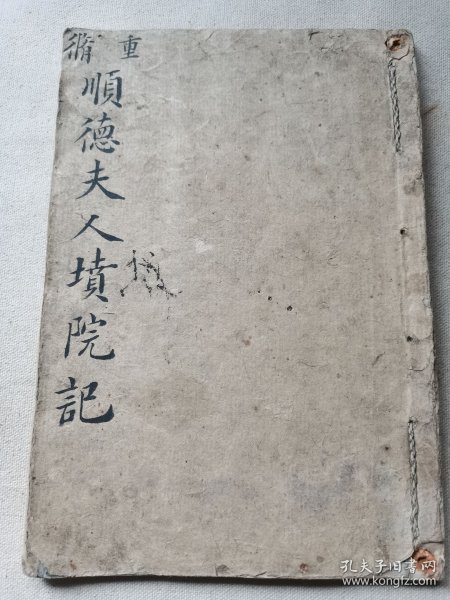 重脩
順德夫人墳院記
孔夫子旧书网
www.kongfz.com